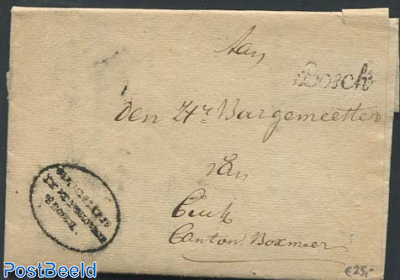 Aan
Bosch
Den Hr Burgemeester
van
Cuck
Canton Boxmeer
€25,-
PostBeeld